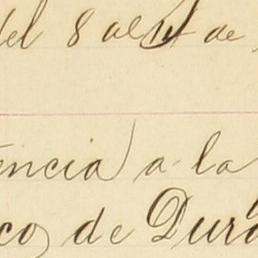 del 8 al 11 de
encia) a la
co, de Dura